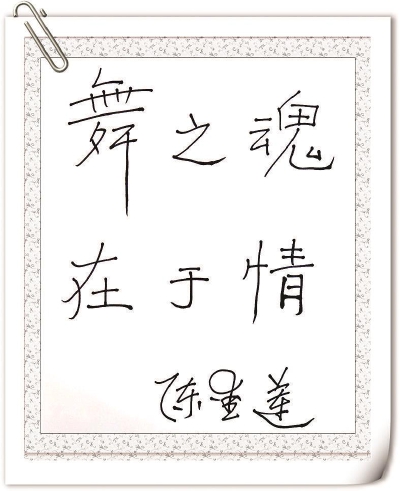 舞之魂
在于情
陈爱莲